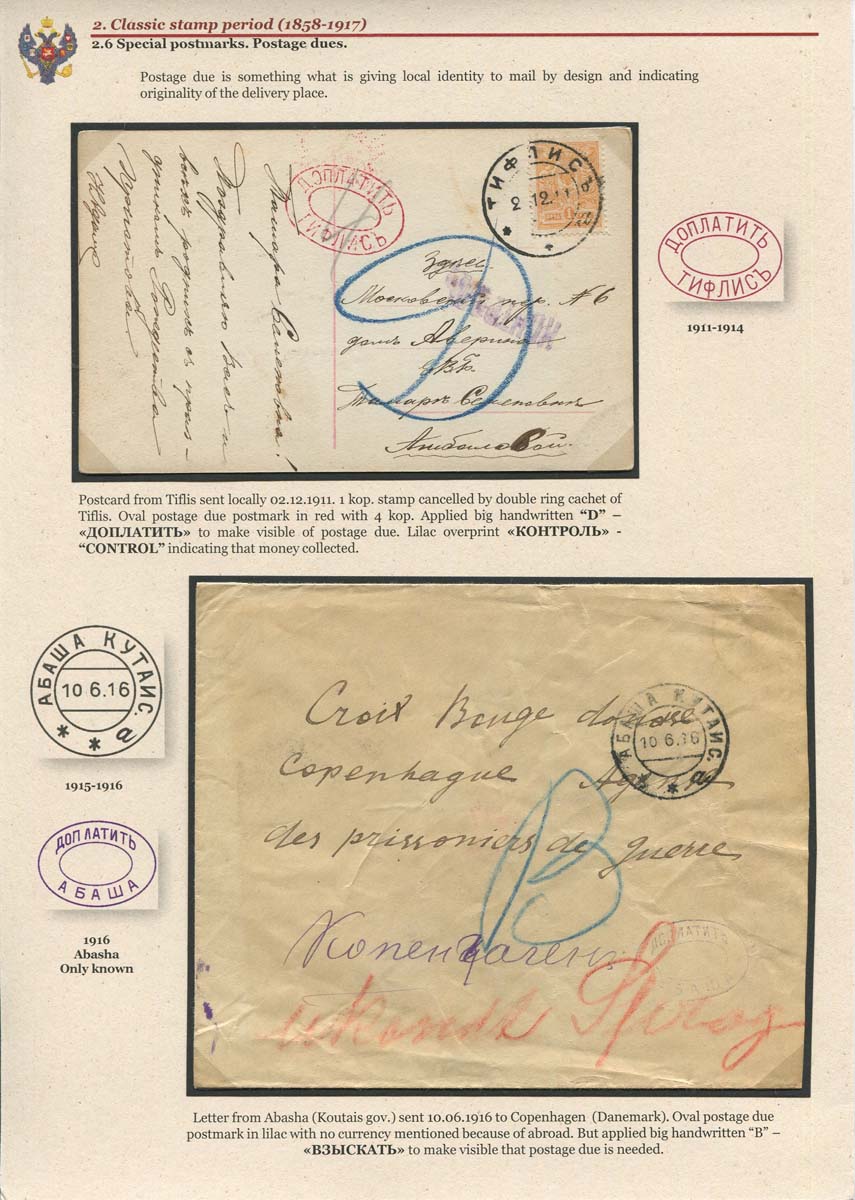 2. Classic stamp period (1858-1917)
2.6 Special postmarks. Postage dues.
Postage due is something what is giving local identity to mail by design and indicating
originality of the delivery place.
ДОПЛАТИТЬ
ТИФЛИСЪ
4
ТИФЛИСЪ
2.12.11
Тамара Семеновна!
Поздравляю Васъ и
Здѣсь
Московский пер. № 6
домъ Аверина
Е.В.Б.
Тамарѣ Семеновнѣ
ДОПЛАТИТЬ
ТИФЛИСЪ
1911-1914
Postcard from Tiflis sent locally 02.12.1911. 1 kop. stamp cancelled by double ring cachet of
Tiflis. Oval postage due postmark in red with 4 kop. Applied big handwritten “D” –
«ДОПЛАТИТЬ» to make visible of postage due. Lilac overprint «КОНТРОЛЬ» -
“CONTROL” indicating that money collected.
АБАША КУТАИС.
10 6.16
* * а
1915-1916
ДОПЛАТИТЬ
АБАША
1916
Abasha
Only known
АБАША КУТАИС.
10 6.16
* * а
Croix Rouge danoise
Copenhague
des prissoniers de guerre
В
Копенгагенъ
ДОПЛАТИТЬ
АБАША
Letter from Abasha (Koutais gov.) sent 10.06.1916 to Copenhagen (Danemark). Oval postage due
postmark in lilac with no currency mentioned because of abroad. But applied big handwritten “B” –
«ВЗЫСКАТЬ» to make visible that postage due is needed.